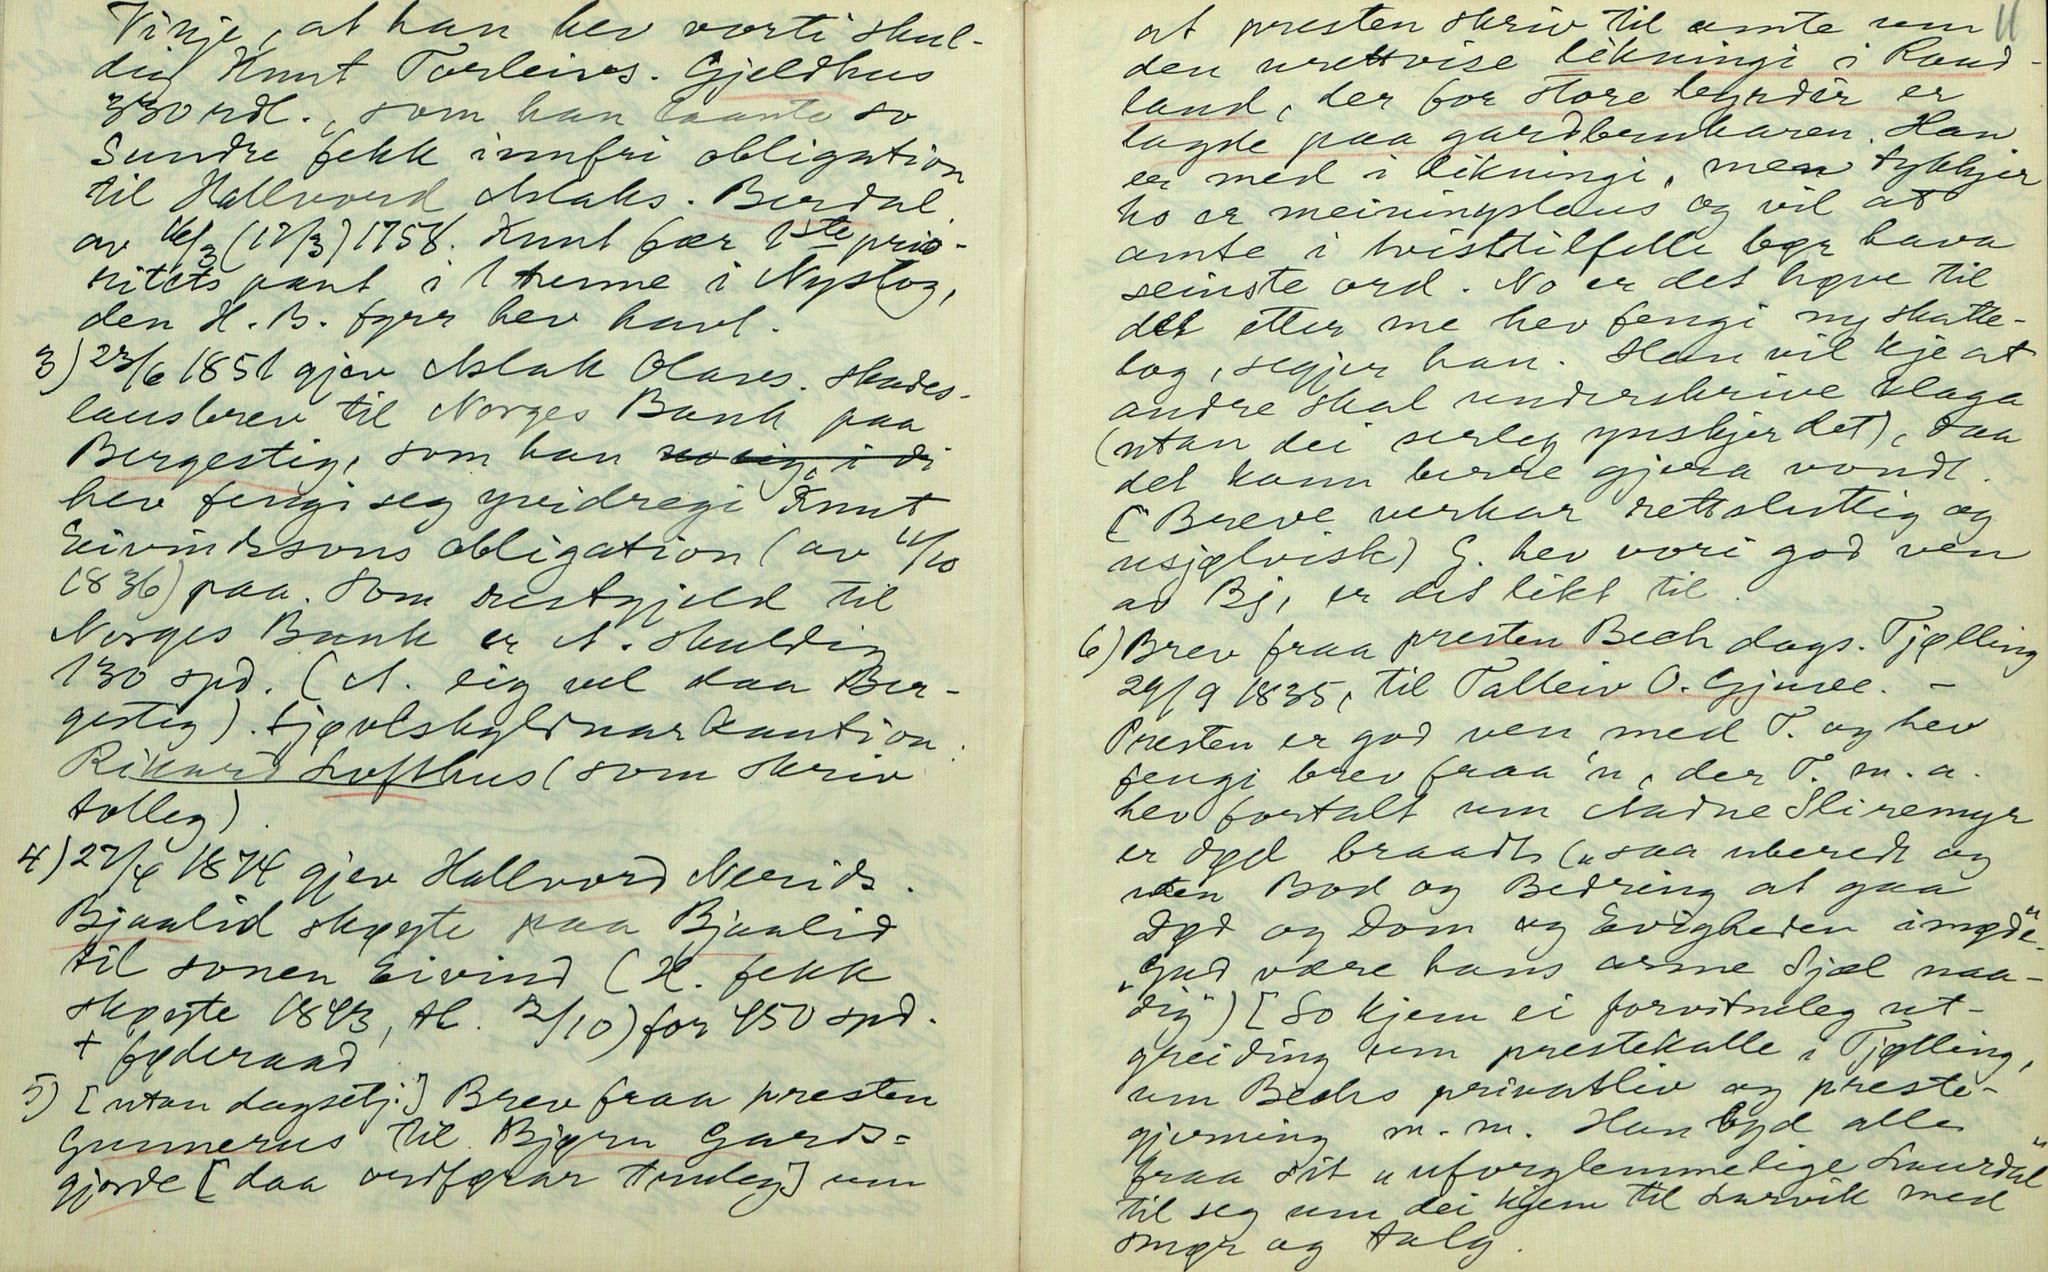 Vinje, at han hev vorti skul-
dig Knut Torleivs. Gjeldhus
330 rdl., som han laante so
Sundre fekk innfri obligation
til Hallvord Aslaks. Berdal
av 16/3 (17/3) 1758. Knut fær 1ste prio-
ritets pant i 1 tunne i Nystog,
den H. B. fyrr hev havt.
3) 23/6 1851 gjev Aslak Olavs. skades-
lausbrev til Norges Bank paa
Bergestig, som han
hev fengi seg yvidregi Knut
Eivindssons obligation (av 11/10
1836) paa. Som restgjeld til
Norges Bank er A. skuldig
130 spd. (A. eig vel daa Ber-
gestig). Sjøvlskyldnarkaution:
Rikard Lofthus (som skriv
tolleg).
4) 27/4 1874 gjev Hallvord Nerids.
Bjaalid skøyte paa Bjaalid
til sonen Eivind (H. fekk
skøyte 1843, tl. 2/10) for 450 spd.
+ føderaad.
5) [utan dagsetj.] Brev fraa presten
Gunnerus til Bjørn Gards-
gjorde [daa ordførar truleg] um
11
at presten skriv til amte um
den urettvise likningi i Raud-
land, der for store byrdir er
lagde paa gardbrukaren. Han
er med i likningi, men tykkjer
ho er meiningslaus og vil at
amte i tvisttilfelle bør hava
seinste ord. No er det høve til
det etter me hev fengi ny skatte-
log, segjer han. Han vil kje at
andre skal underskrive klaga
(utan dei serleg ynskjer det), daa
det kann berre gjera vondt.
[Breve verkar rettsluttig og
usjølvisk) G. hev vori god ven
av Bj, er det likt til.
6) Brev fraa presten Bech dags. Tjølling
29/9 1835, til Talleiv O. Gjuve. –
Presten er god ven med T. og hev
fengi brev fraa 'n, der T. m. a.
hev fortalt um Aadne Sliremyr
er død braadt („saa uberedt og
uden Bod og Bedring at gaa
Død og Dom og Evigheden imøde“,
„Gud være hans arme Sjæl naa-
dig“) [So kjem ei forvitneleg ut-
greiding um prestekalle i Tjølling,
um Bechs privatliv og preste-
gjerning m. m. Han byd alle
fraa sit „uforglemmelige Laurdal“
til seg um dei kjem til Larvik med
smør og talg.